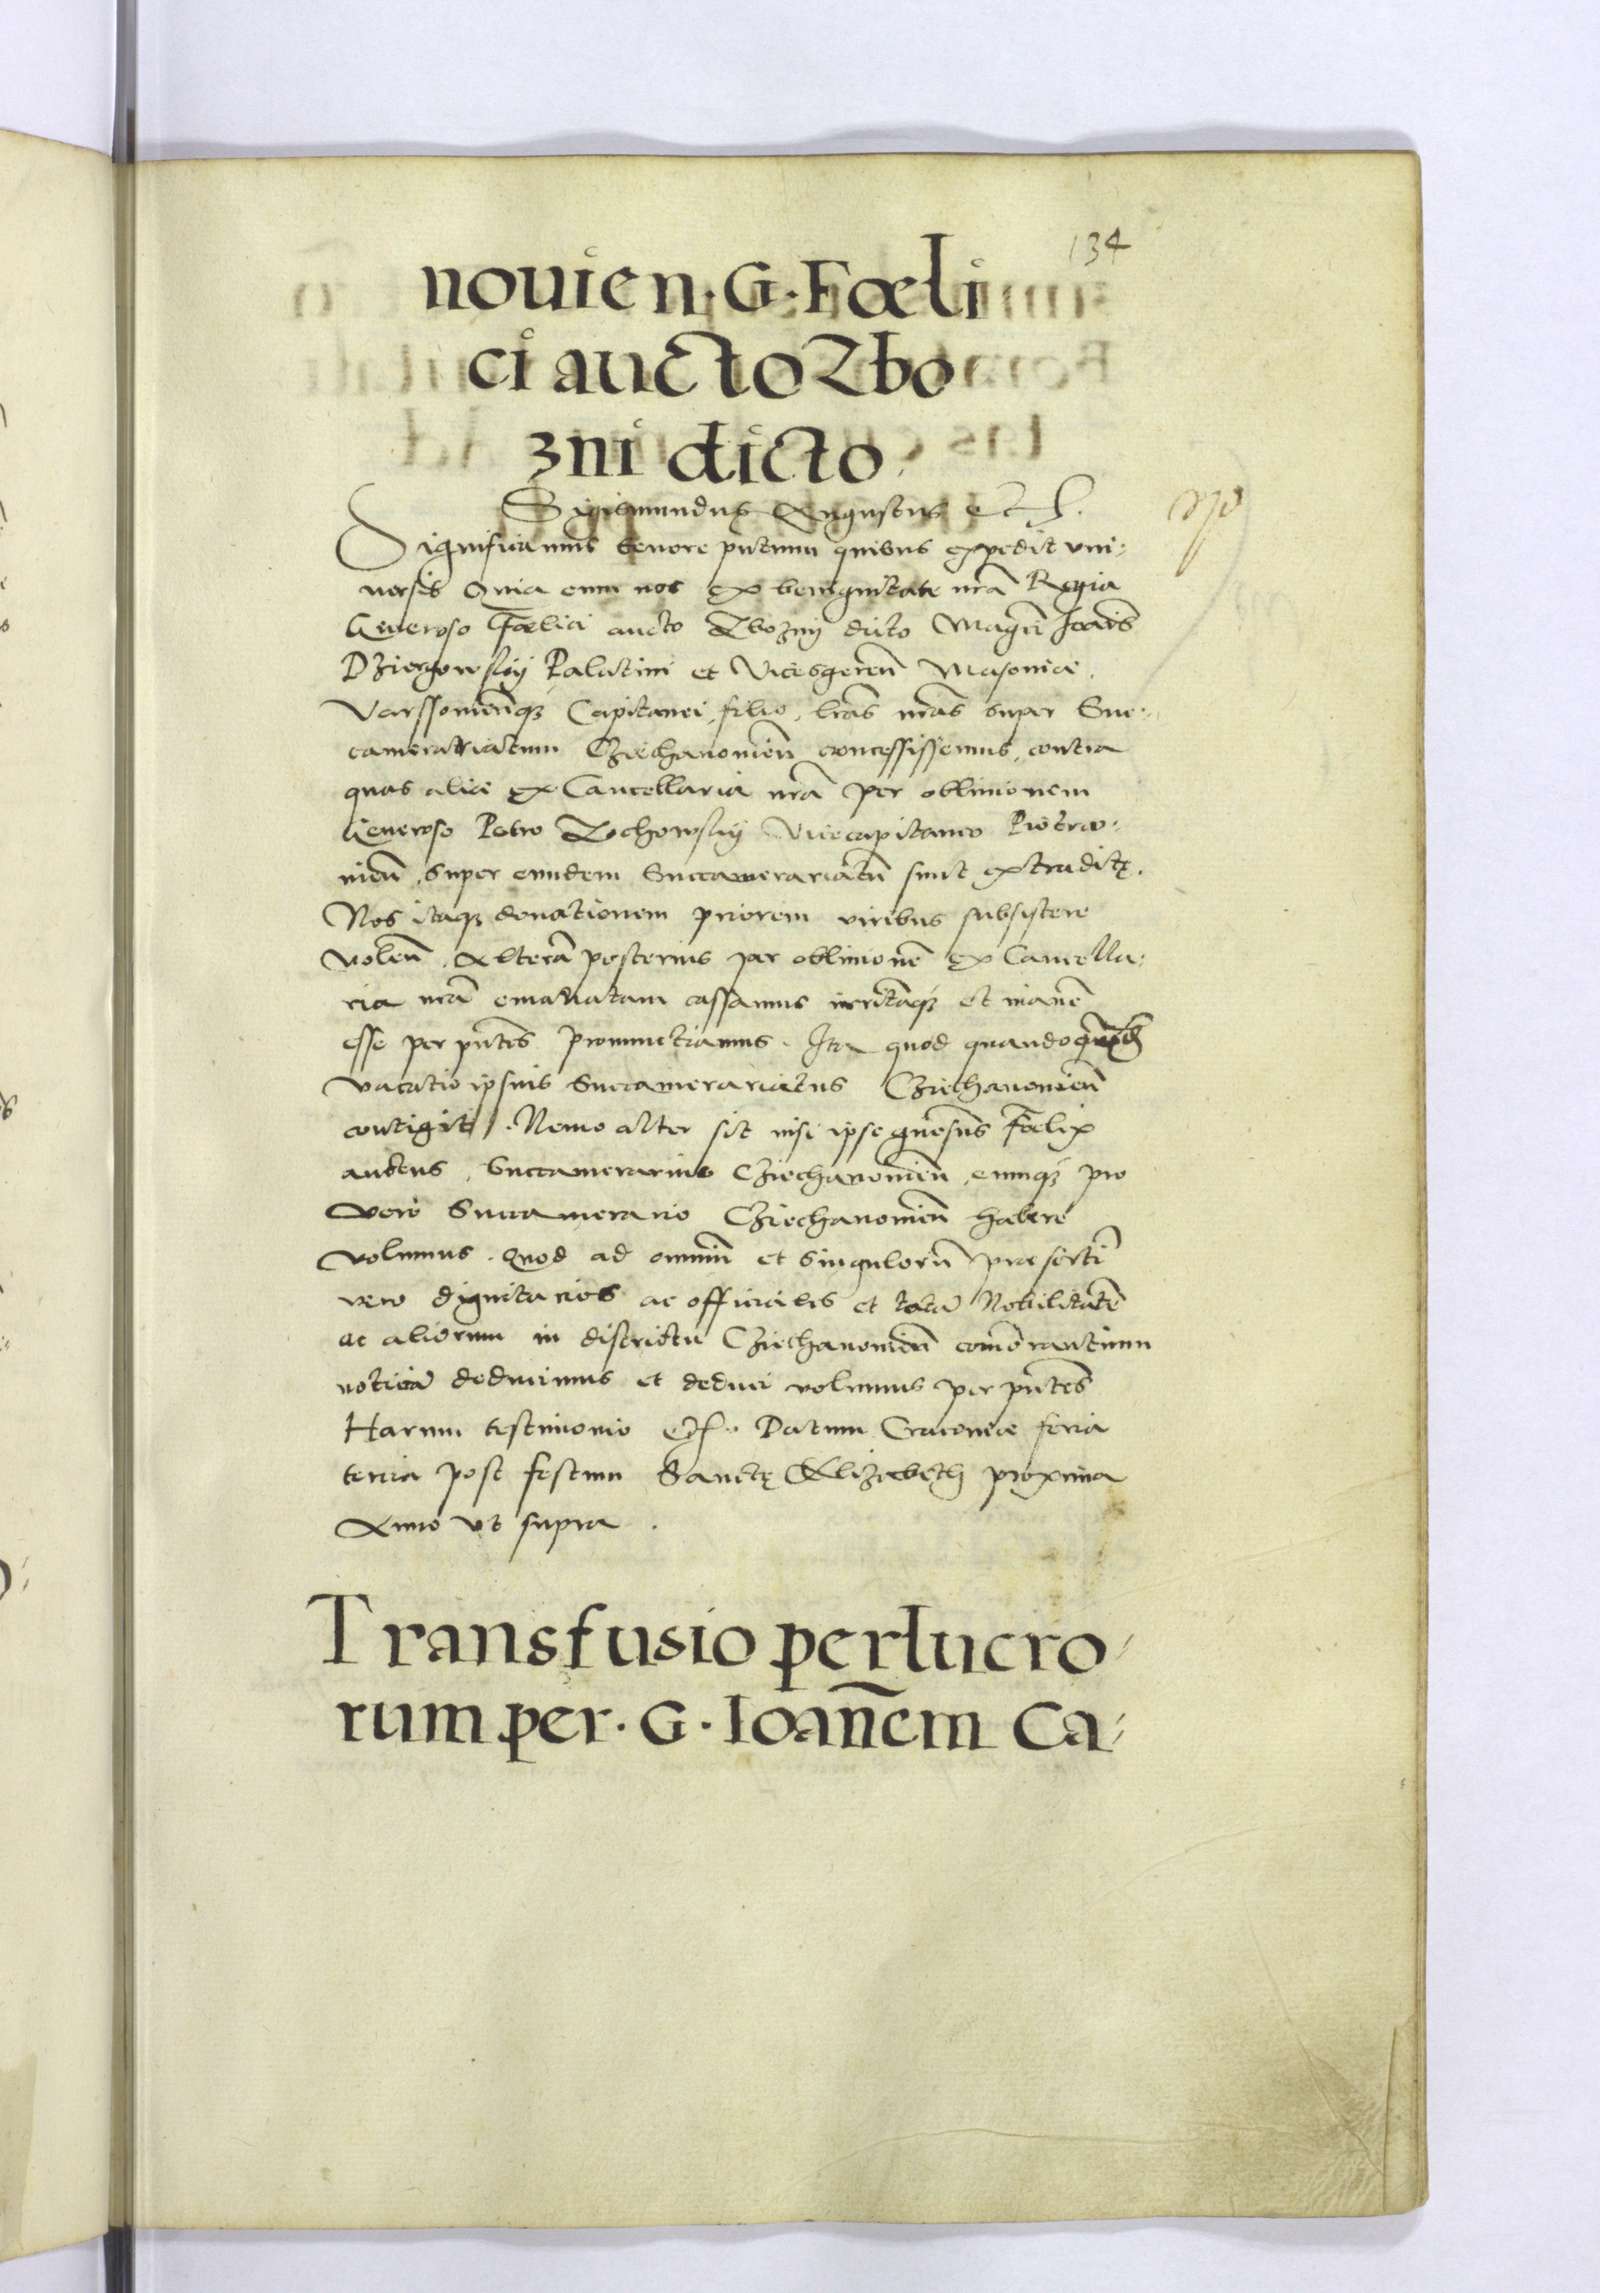 134
novien. G. Fœli
ci aucto Zbo
zni dicto
Sigismundus Augustus etc.
Significamus tenore pntium quibus expedit uni-
versis Quia cum nos ex benignitate nrã Regia
Generoso Fœlici aucto Zboznÿ dicto Magcĩ Ioãnis
Dziergowskÿ Palatini et Vicesgereñ Masoviae,
Varssovieñq3 Capitanei, filio, lrãs nrãs super Suc-
camerariatum Cziechanovieñ concessissemus, contra
quas aliæ ex Cancellaria nrã per oblivionem
Generoso Petro Zochowskÿ Vicecapitaneo Piotrco-
vieñ, super eundem Succamerariatũ sunt extraditę.
Nos itaq3 donationem priorem viribus subsistere
voleñ, Alterã posterius per oblivionẽ ex Cancella-
ria nrã emanatam cassamus irritãq3 et inanẽ
esse per pñtes pronunctiamus. Ita quod quandocunq3
vacatio ipsius Succamerariatus Cziechanovieñ
contigit. Nemo alter sit nisi ipse gñosus Fœlix
auctus, Succamerarius Cziechanovieñ, eumq3 pro
vero Succamerario Cziechanovieñ habere
volumus. Quod ad omniũ et singulorũ præsertĩ
vero dignitarios ac officiales et totã Nobilitatẽ
ac aliorum in districtu Cziechanovieñ comõrantium
noticiã deducimus et deduci volumus per pñtes
Harum testimonio etc. Datum Cracoviæ feria
tercia post festum Sanctę Elizabeth proxima
Anno ut supra.
Transfusio perlucro-
rum per. G. Ioañem Ca-